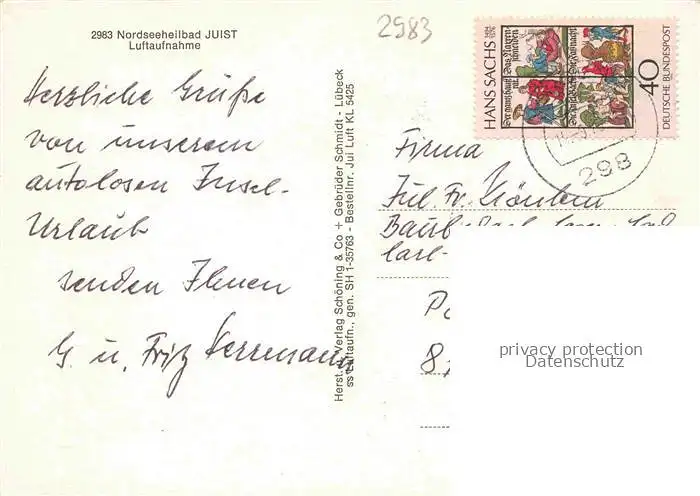 2983 Nordseeheilbad JUIST
Luftaufnahme
2983
Herzliche Grüße
von unserem
autolosen Insel-
Urlaub
senden Ihnen
G. u. Fritz Herrmann
Herst. u. Verlag Schöning & Co + Gebrüder Schmidt - Lübeck
ss Luftaufn., gen. SH 1-35763 - Bestellnr. Jui Luft KL 5425
HANS SACHS
DEUTSCHE BUNDESPOST
40
298
Firma
Jul. Fr.
privacy protection
Datenschutz